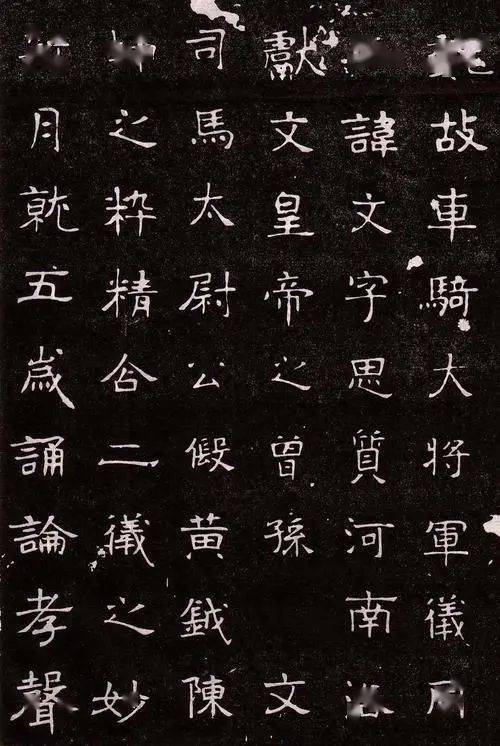 故車騎大將軍儀同
諱文字思質河南
獻文皇帝之曾孫 文
司馬太尉公假黃鉞陳
之粹精合二儀之妙
月就五歲誦論孝聲